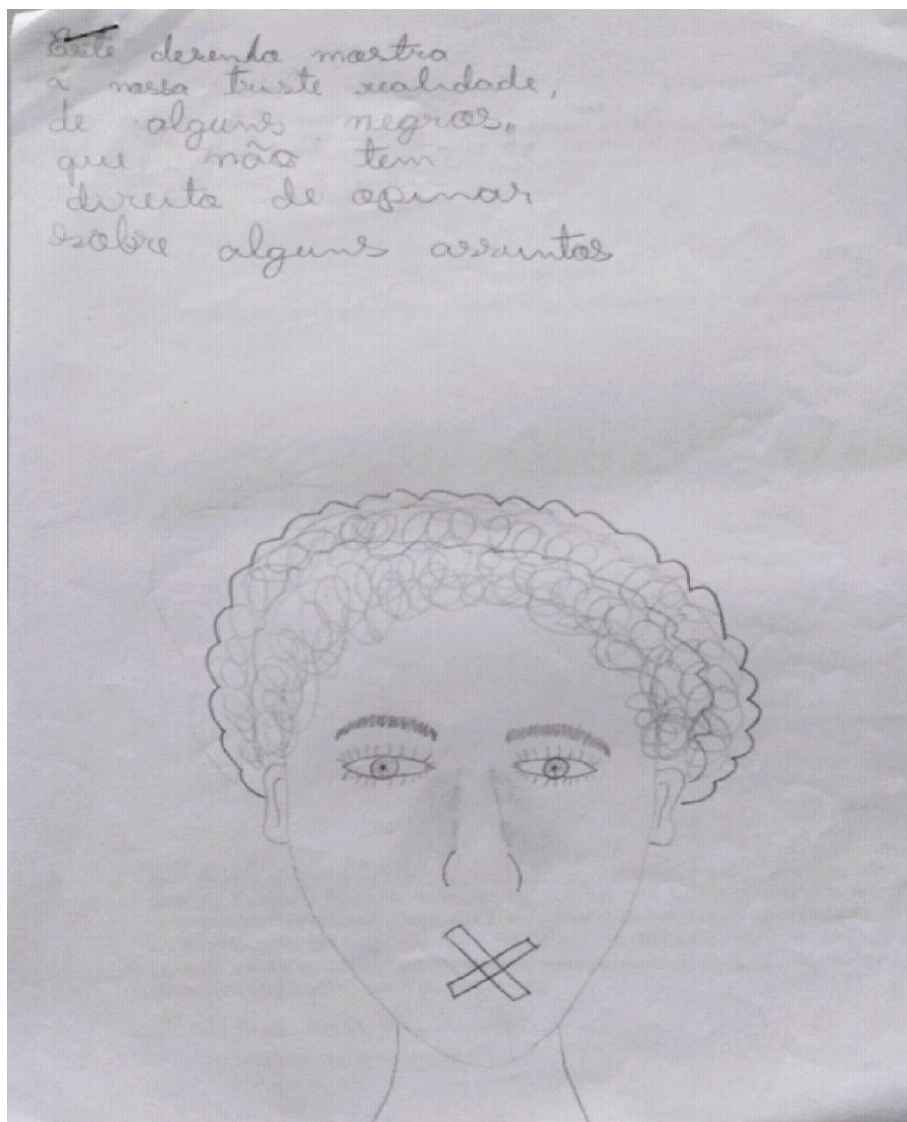 Este desenho mostra
a nossa triste realidade,
de alguns negros,
que não tem
direito de opinar
sobre alguns assuntos